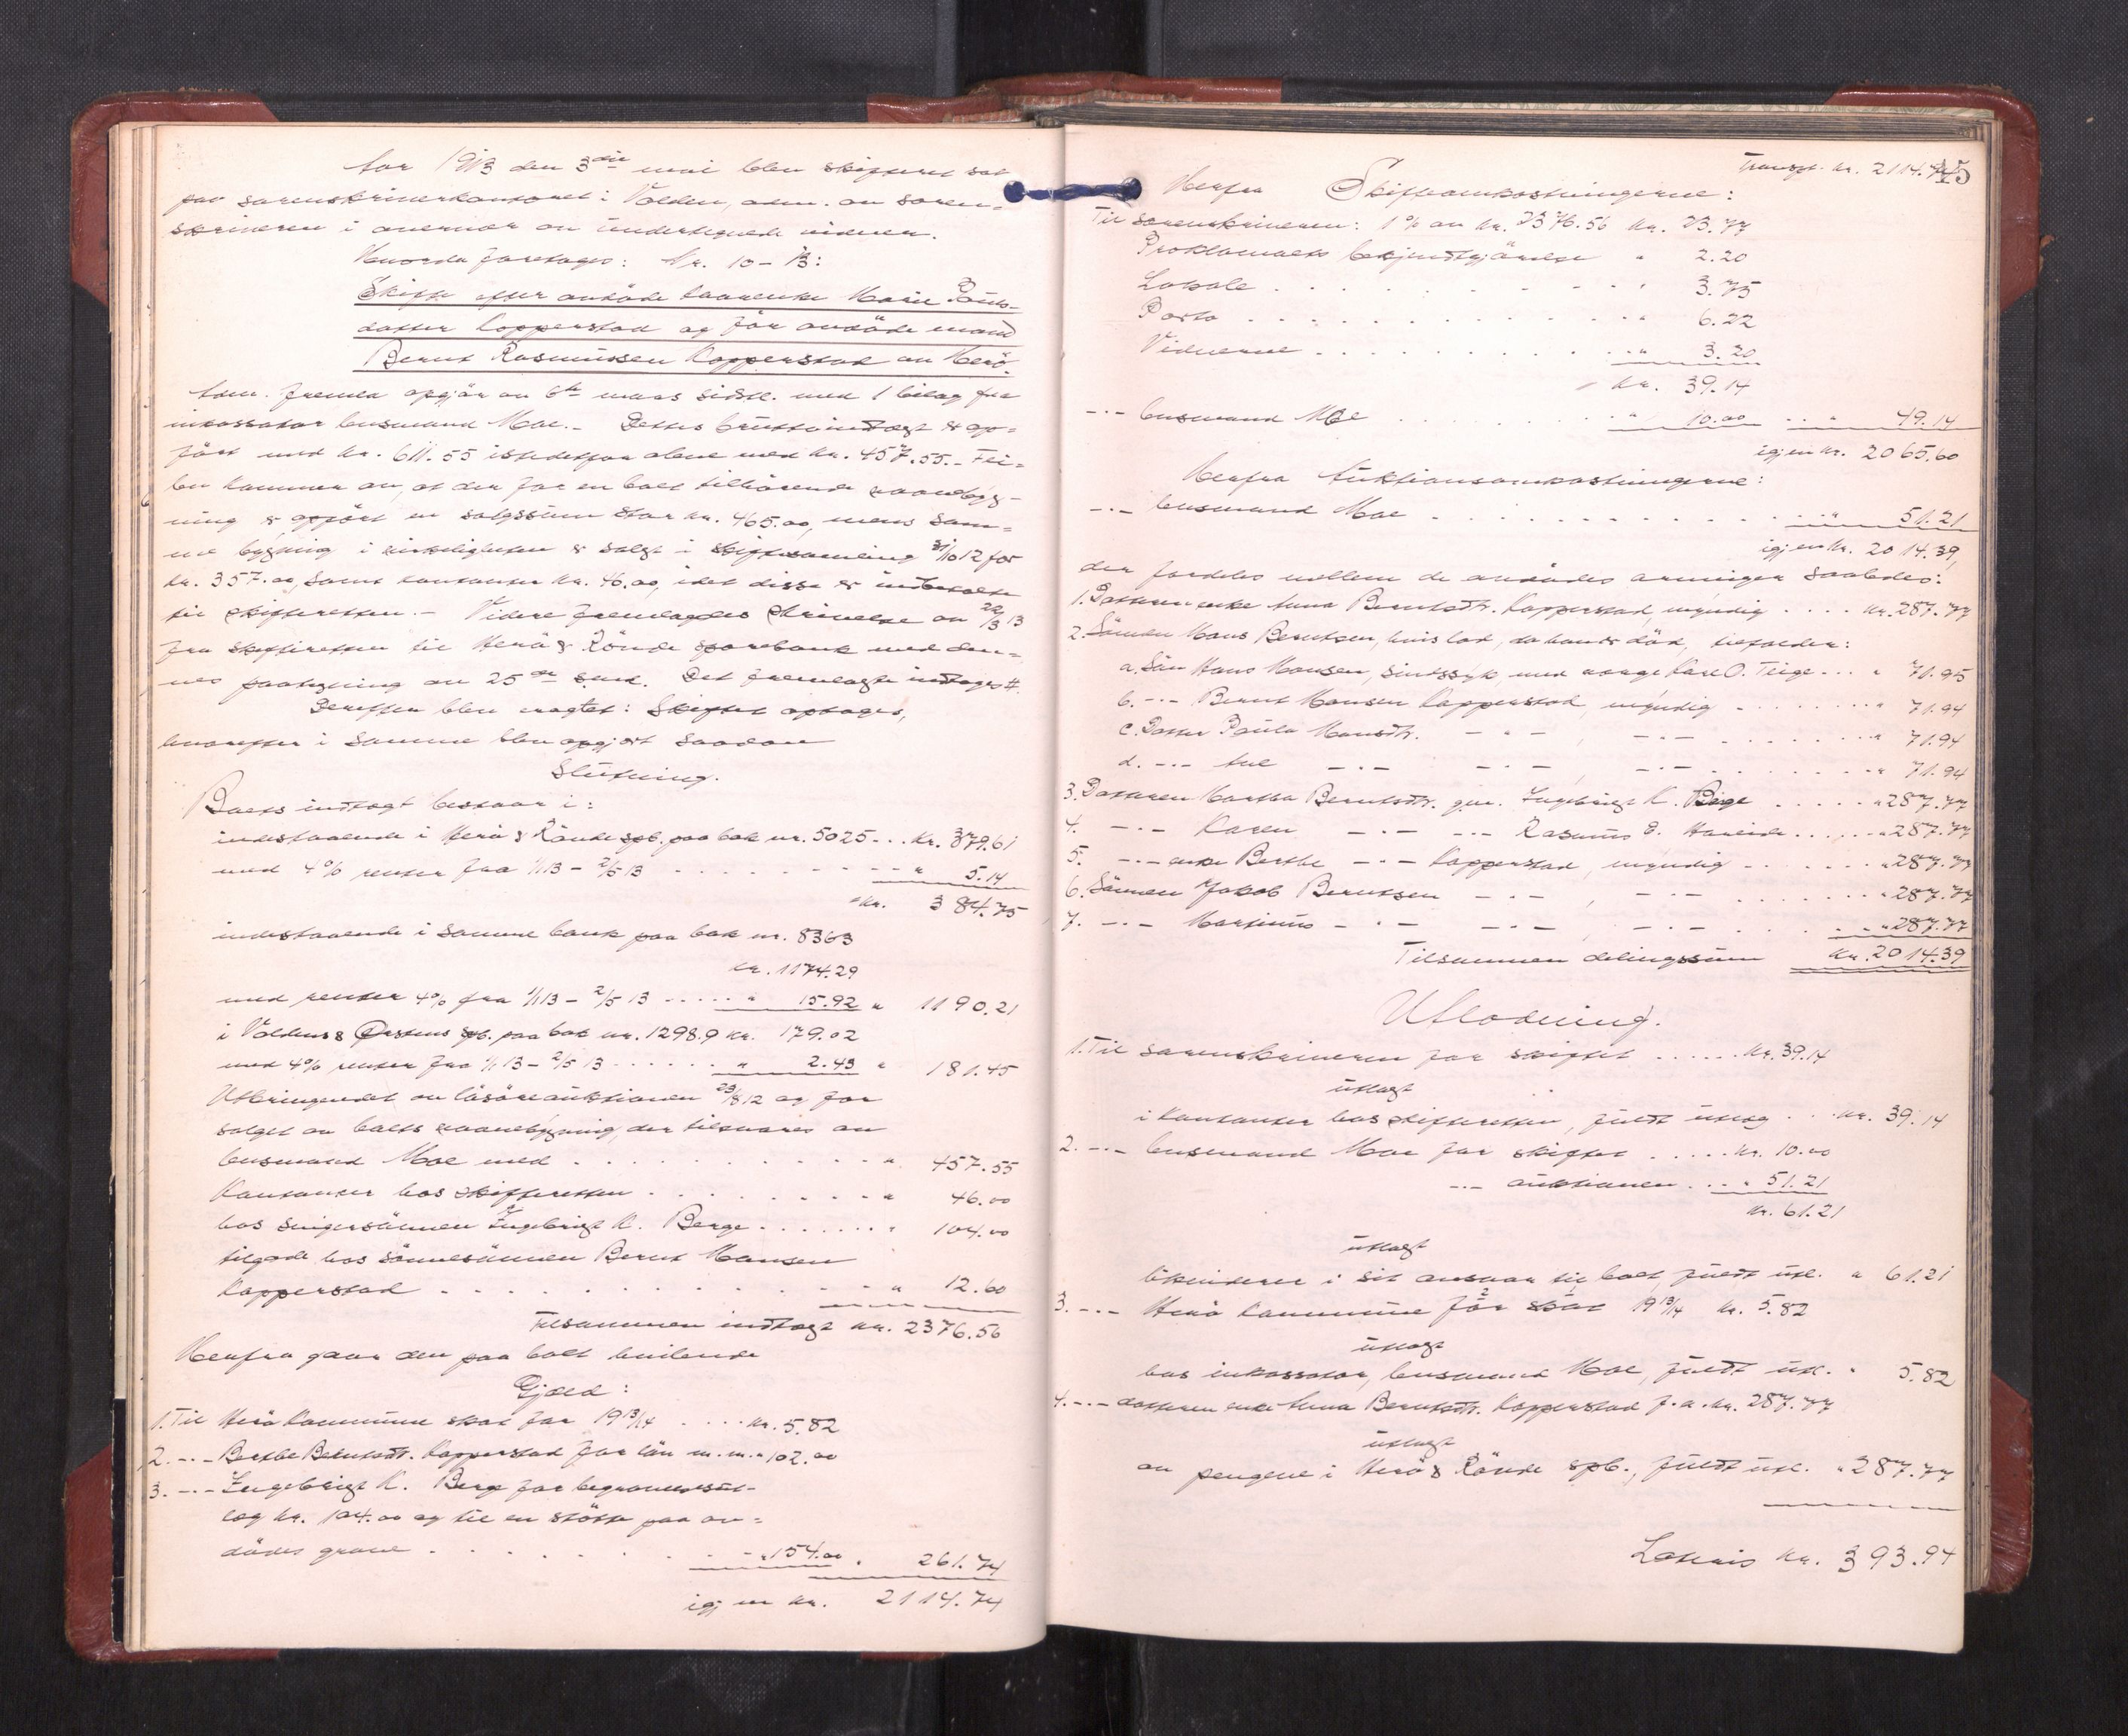 Aar 1913 den 3die mai blev skifteret sat
paa sorenskriverkontoret i Volden, adm. av soren-
skriveren i overvær av undertegnede vidner.
Hvorda foretoges: Nr. 10-13:
Skifte efter avdöde kaarenke Marie Pouls-
datter Kopperstad og för avdöde mand
Bernt Rasmussen Kopperstad av Herö.
Adm. fremla opgjör av 6te mars sidstl. med 1 bilag fra
inkassator lensmand Moe. - Dettes bruttoindtægt er op-
fört med kr. 611.55 istedetfor alene med kr. 457.55. - Fei-
len kommer av, at der for en boet tilhörende vaanebyg-
ning er opfört en salgssum stor kr. 465.00, mens sam-
me bygning i virkeligheten er solgt i skiftesamling 31/10 12 for
kr. 357.00, samt kontanter kr. 46.00, idet disse er indbetalt
til skifteretten. - Videre fremlagdes skrivelse av 22/3 13
fra skifteretten til Herö & Rönde sparebank med den-
nes paategning av 25de s.md. Det fremlagte indtages #.
Derefter blev eragtet: Skiftet optages,
hvorefter i samme blev opgjort saadan
Slutning.
Boets indtægt bestaar i:
indestaaende i Herö & Rönde spb. paa bok nr. 5025 ... Kr. 379.61
med 4% renter fra 1/1 13 - 2/5 13 . . . . . " 5.14
Kr. 384.75
indestaaende i samme bank paa bok nr. 8363
kr. 1174.29
med renter 4% fra 1/1 13 - 2/5 13 ..... " 15.92 " 1190.21
i Voldens & Örstens spb. paa bok nr. 12989 kr. 179.02
med 4% renter fra 1/1 13 - 2/5 13 ...... " 2.43 " 181.45
Utbringendet av lösöreauktionen 23/8 12 og for
salget av boets vaanebygning, der tilsvares av
lensmand Moe med . . . . . . " 457.55
Kontanter hos skifteretten . . . . . . " 46.00
hos svigersönnen Ingebrigt K. Berge . . . . . " 104.00
tilgode hos sönnesönnen Bernt Hansen
Kopperstad . . . . . . . . " 12.60
Tilsammen indtægt kr. 2376.56
Herfra gaar den paa boet hvilende
Gjæld:
1. Til Herö kommune skat for 1913/14 .... kr. 5.82
2. -"- Berthe Berntsdtr. Kopperstad for lån m.m. " 102.00
3. -"- Ingebrigt K. Berge for begravelsesut-
læg kr. 104.00 og til en stötte paa av-
dödes grave . . . . . . " 154.00 " 261.74
igjen kr. 2114.74
Transpt. kr. 2114.74
45
Herfra Skifteomkostningerne:
Til sorenskriveren: 1% av kr. 2376.56 kr. 23.77
Proklamaets bekjendtgjörelse " 2.20
Lokale . . . . . . . . " 3.75
Porto . . . . . . . . " 6.22
Vidnerne . . . . . . . . " 3.20
Kr. 39.14
-"- lensmand Moe . . . . . . " 10.00 ... " 49.14
igjen kr. 2065.60
Herfra Auktionsomkostningerne:
-"- lensmand Moe . . . . . . . . " 51.21
igjen kr. 2014.39,
der fordeles mellem de avdödes arvinger saaledes:
1. Datteren enke Anna Berntsdtr. Kopperstad, myndig .... kr. 287.77
2. Sönnen Hans Berntsen, hvis lod, da han er död, tilfalder:
a. Sön Hans Hansen, sindssyk, med verge Kare O. Teige ... " 71.95
b. -"- Bernt Hansen Kopperstad myndig . . . . . . " 71.94
c. Datter Paula Hansdtr. -"- , -"- . . . . . " 71.94
d. -"- Ane -"- -"- , -"- . . . . . " 71.94
3. Datteren Martha Berntsdtr. gm. Ingebrigt K. Berge ..... " 287.77
4. -"- Karen -"- -"- Rasmus E. Hareide ..... " 287.77
5. -"- enke Berthe -"- Kopperstad, myndig . . . . . " 287.77
6. Sönnen Jakob Berntsen -"- , -"- . . . . . " 287.77
7. -"- Martinus -"- -"- , -"- . . . . " 287.77
Tilsammen delingssum kr. 2014.39
Utlodning.
1. Til sorenskriveren for skiftet ...... kr. 39.14
utlagt
i kontanter hos skifteretten, fuldt utlæg . . . kr. 39.14
2. -"- lensmand Moe for skiftet ..... kr. 10.00
-"- auktionen ... " 51.21
kr. 61.21
utlagt
likviderer i sit ansvar til boet, fuldt utl. " 61.21
3. -"- Herö kommune for skat 1913/14 kr. 5.82
utlagt
hos inkassator, lensmand Moe, fuldt utl. " 5.82
4. -"- datteren enke Anna Berntsdtr. Kopperstad f.a. kr. 287.77
utlagt
av pengene i Herö & Rönde spb., fuldt utl. " 287.77
Lateris kr. 393.94